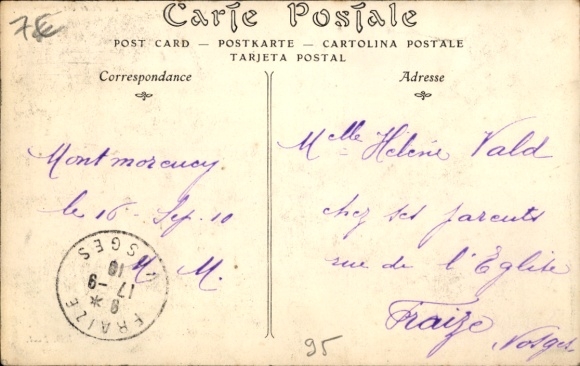 7€
Carte Postale
POST CARD — POSTKARTE — CARTOLINA POSTALE
TARJETA POSTAL
Correspondance
Adresse
Montmorency
le 16 - Sep. 10
M. M.
FRAIZE
VOSGES
9 *
17 - 9
10
Melle Hélène Vald
chez ses parents
rue de l'Église
Fraize
Vosges
95